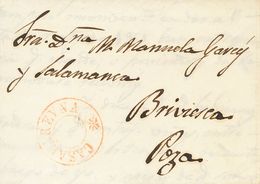 Sra. Dna. M. Manuela Garcy
y Salamanca
Briviesca
Poza
CASA LA REYNA